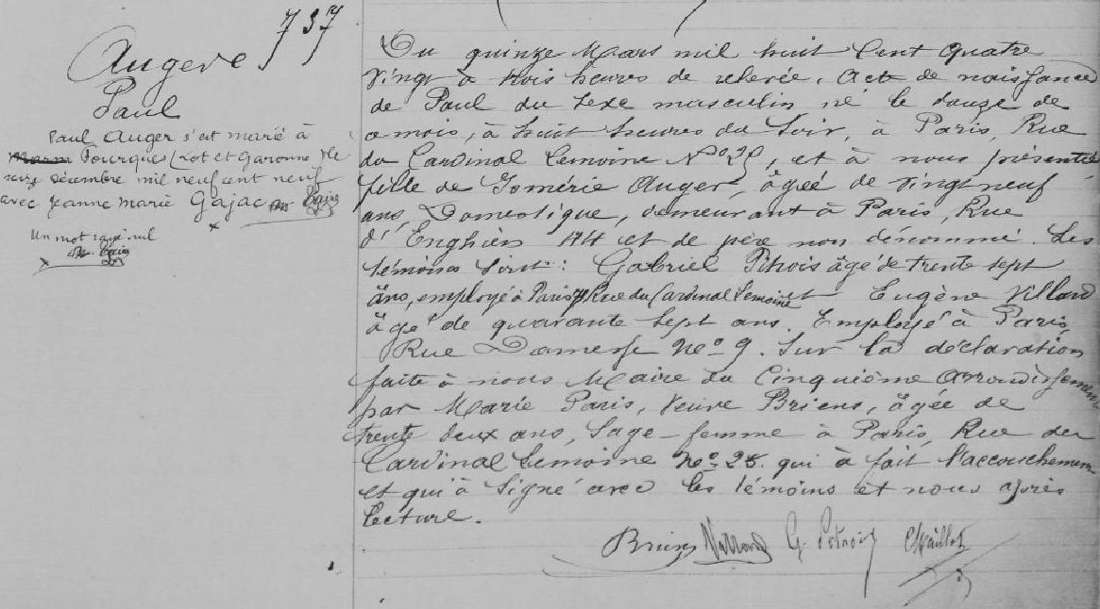 737
Augere
Paul
Paul Auger s'est marié à
Fourques (Lot et Garonne) le
seize décembre mil neuf cent neuf
avec Jeanne Marie Gajac
Un mot rayé nul
Du quinze Mars mil huit Cent quatre
Vingt à trois heures de relevée. Acte de naissance
de Paul du sexe masculin né le douze de
ce mois, à huit heures du Soir, à Paris, Rue
du Cardinal Lemoine No 28, et à nous présenté
fils de Auger, âgée de vingt neuf
ans, Domestique, demeurant à Paris, Rue
d'Enghien et de père non dénommé. Les
témoins sont: Gabriel âgé de trente sept
ans, employé à Paris Rue du Cardinal Lemoine et Eugène Villard
âgé de quarante sept ans. Employé à Paris,
Rue No 9. Sur la déclaration
faite à nous Maire du Cinquième Arrondissement
par Marie Paris, Veuve Briens, âgée de
trente deux ans, Sage-femme à Paris, Rue du
Cardinal Lemoine No 28. qui à fait l'accouchement
et qui à Signé avec les témoins et nous après
lecture.